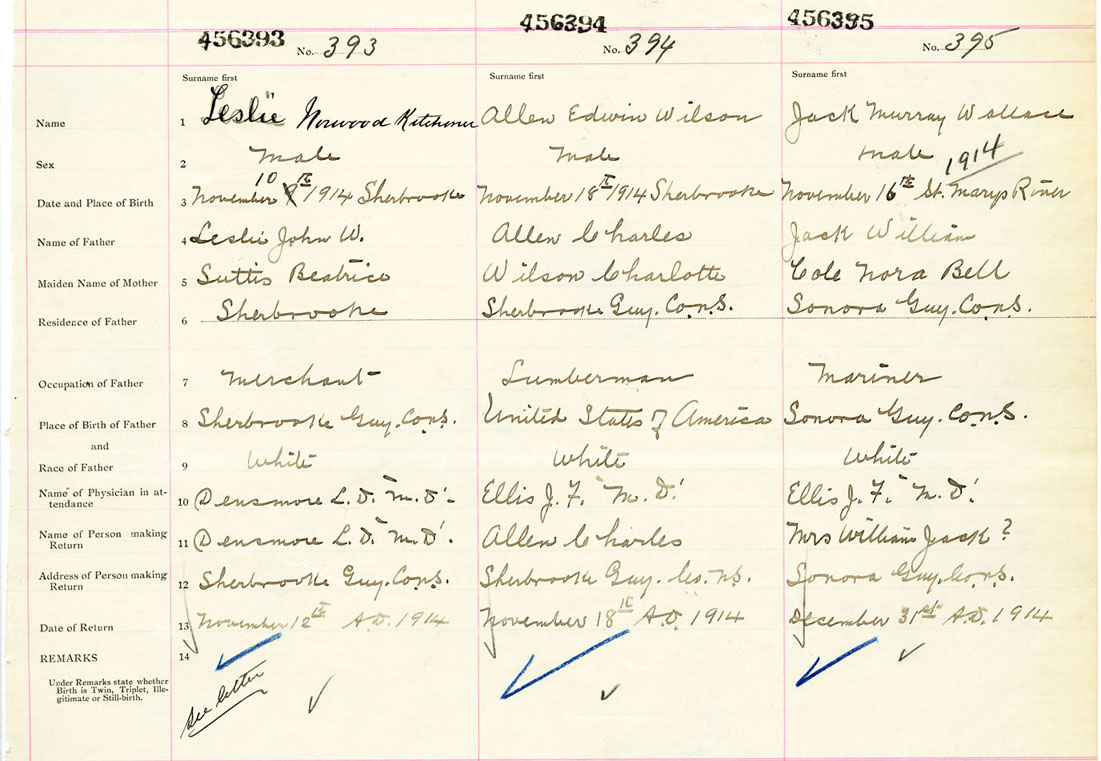 456393 No. 393 456394 No. 394 456395 No. 395
Surname first Surname first Surname first
Name 1 Leslie Norwood Kitchener Allen Edwin Wilson Jack Murray Wallace
Sex 2 Male Male Male
10 1914
Date and Place of Birth 3 November th 1914 Sherbrooke November 18th 1914 Sherbrooke November 16th St. Marys River
Name of Father 4 Leslie John W. Allen Charles Jack William
Maiden Name of Mother 5 Suttis Beatrice Wilson Charlotte Cole Nora Bell
Residence of Father 6 Sherbrooke Sherbrooke Guy. Co. N.S. Sonora Guy. Co. N.S.
Occupation of Father 7 Merchant Lumberman Mariner
Place of Birth of Father 8 Sherbrooke Guy. Co. N.S. United States of America Sonora Guy. Co. N.S.
and
Race of Father 9 White White White
Name of Physician in at-
tendance 10 Densmore L. D. "M. D." Ellis J. F. "M. D." Ellis J. F. "M. D."
Name of Person making
Return 11 Densmore L. D. "M. D." Allen Charles Mrs William Jack ?
Address of Person making
Return 12 Sherbrooke Guy. Co. N.S. Sherbrooke Guy. Co. N.S. Sonora Guy. Co. N.S.
Date of Return 13 November 12th A.D. 1914 November 18th A.D. 1914 December 31st A.D. 1914
REMARKS 14
Under Remarks state whether
Birth is Twin, Triplet, Ille-
gitimate or Still-birth.
See letter